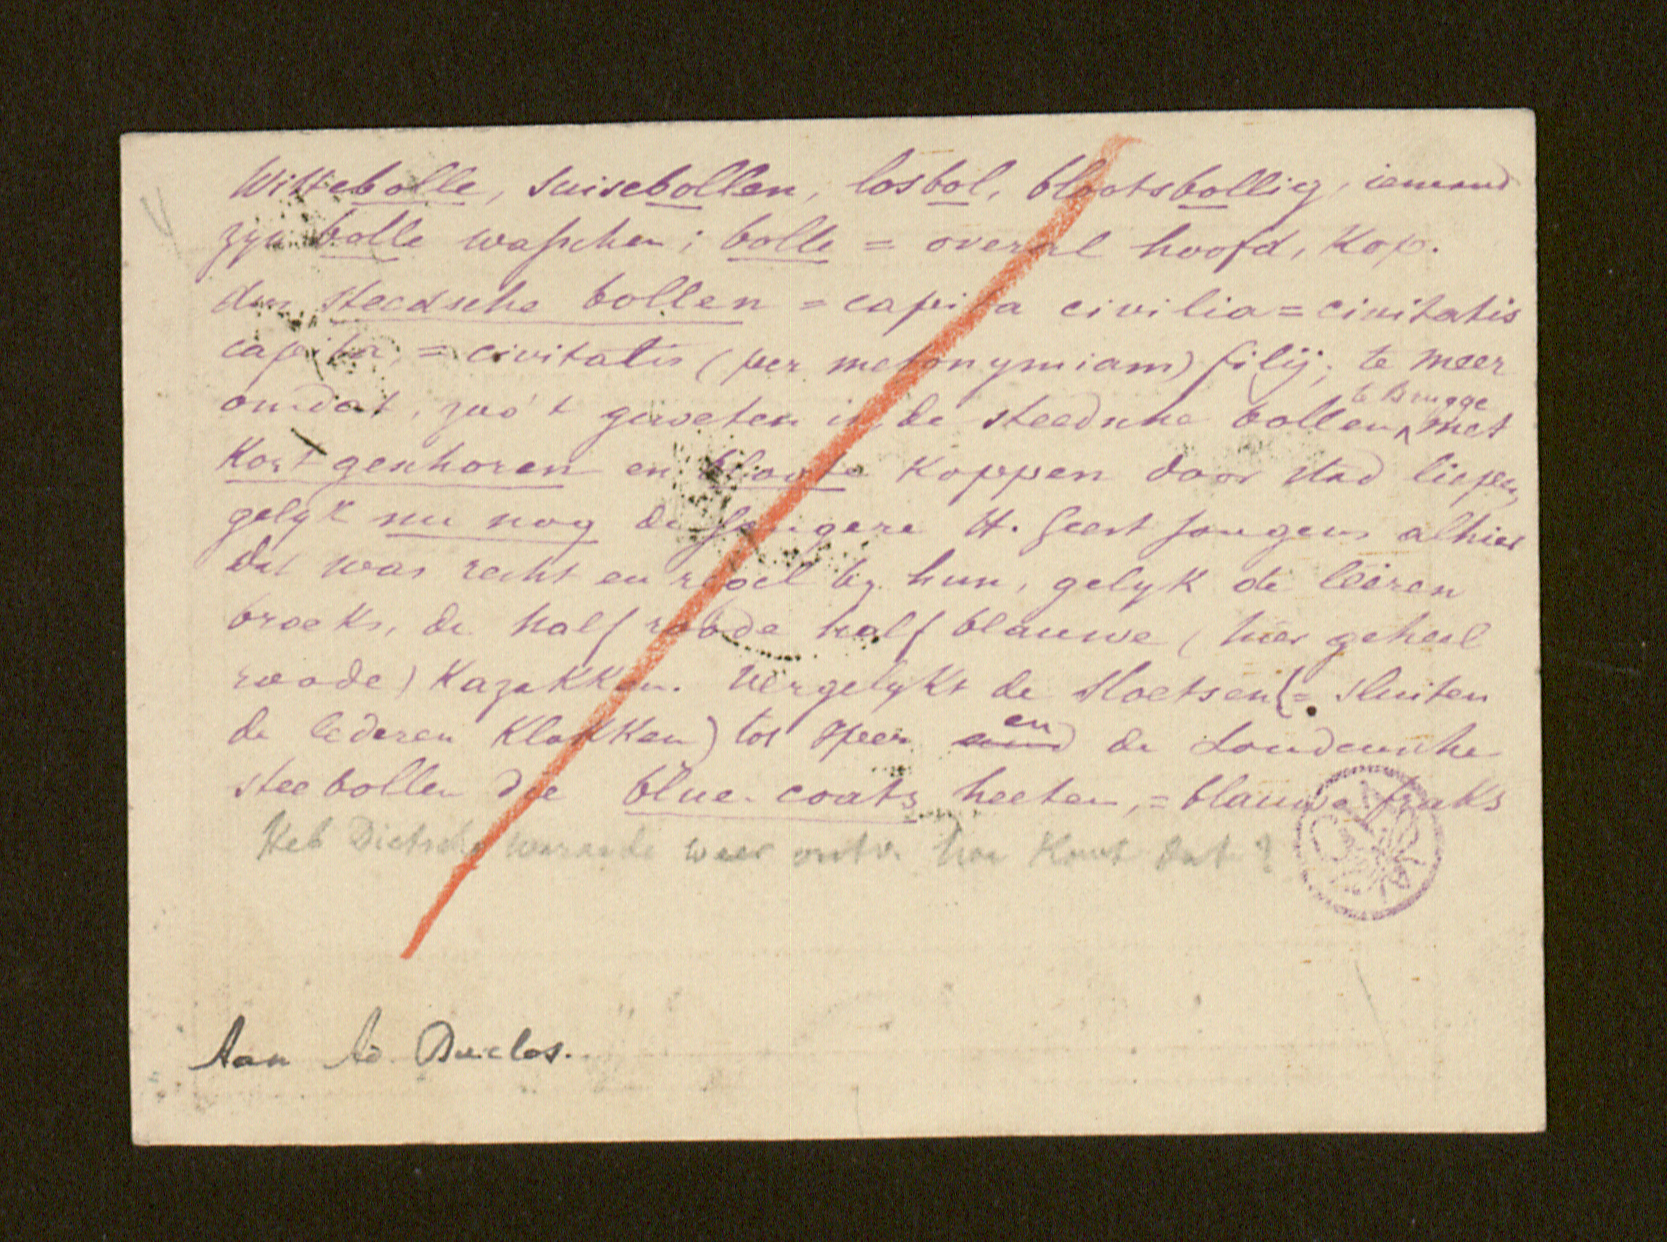 Wittebolle, suisebollen, losbol, blootsbollig, iemand
zyn bolle wasschen; bolle = overal hoofd, Kop.
dus steedsche bollen = capita civilia = civitatis
capita, = civitatis (per metonymiam) filij; te meer
omdat, zoo 't geweten is, de steedsche bollen te Brugge met
Kort geschoren en bloote Koppen door stad liepen,
gelyk nu nog de Jongere H. Geest Jongens alhier
dat was recht en regel by hun, gelyk de lêeren
broeks, de half roode half blauwe (hier geheel
roode) Kazakken. Vergelykt de Sloetsen (= sluiten
de lederen Klakken) tot Yper en de Londensche
steebollen die blue-coats heeten, = blauwe fraks
Heb Dietsche warande weer ontv. hoe Komt dat?
Aan Ad. Duclos.